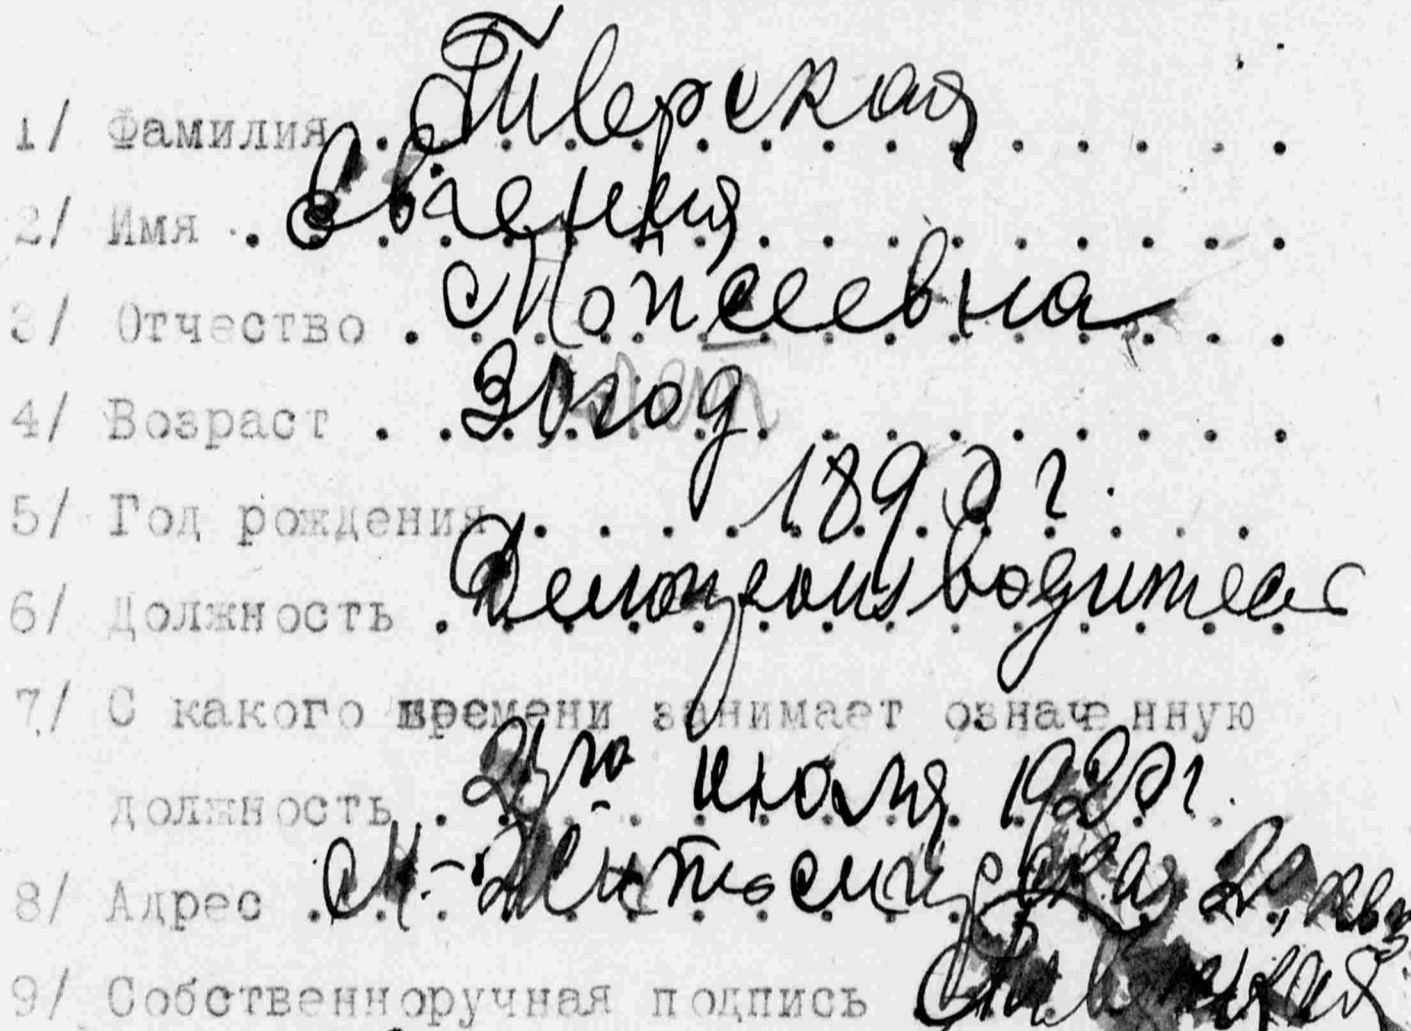 1/ Фамилия . Тверская
2/ Имя . Евгения
3/ Отчество . Моисеевна
4/ Возраст . . 30 год
5/ Год рождения . 1890 г.
6/ Должность . Делопроизводитель
7/ С какого времени занимает означенную
должность . июля 1920 г.
8/ Адрес . М.-Житомирская 20, кв
9/ Собственноручная подпись